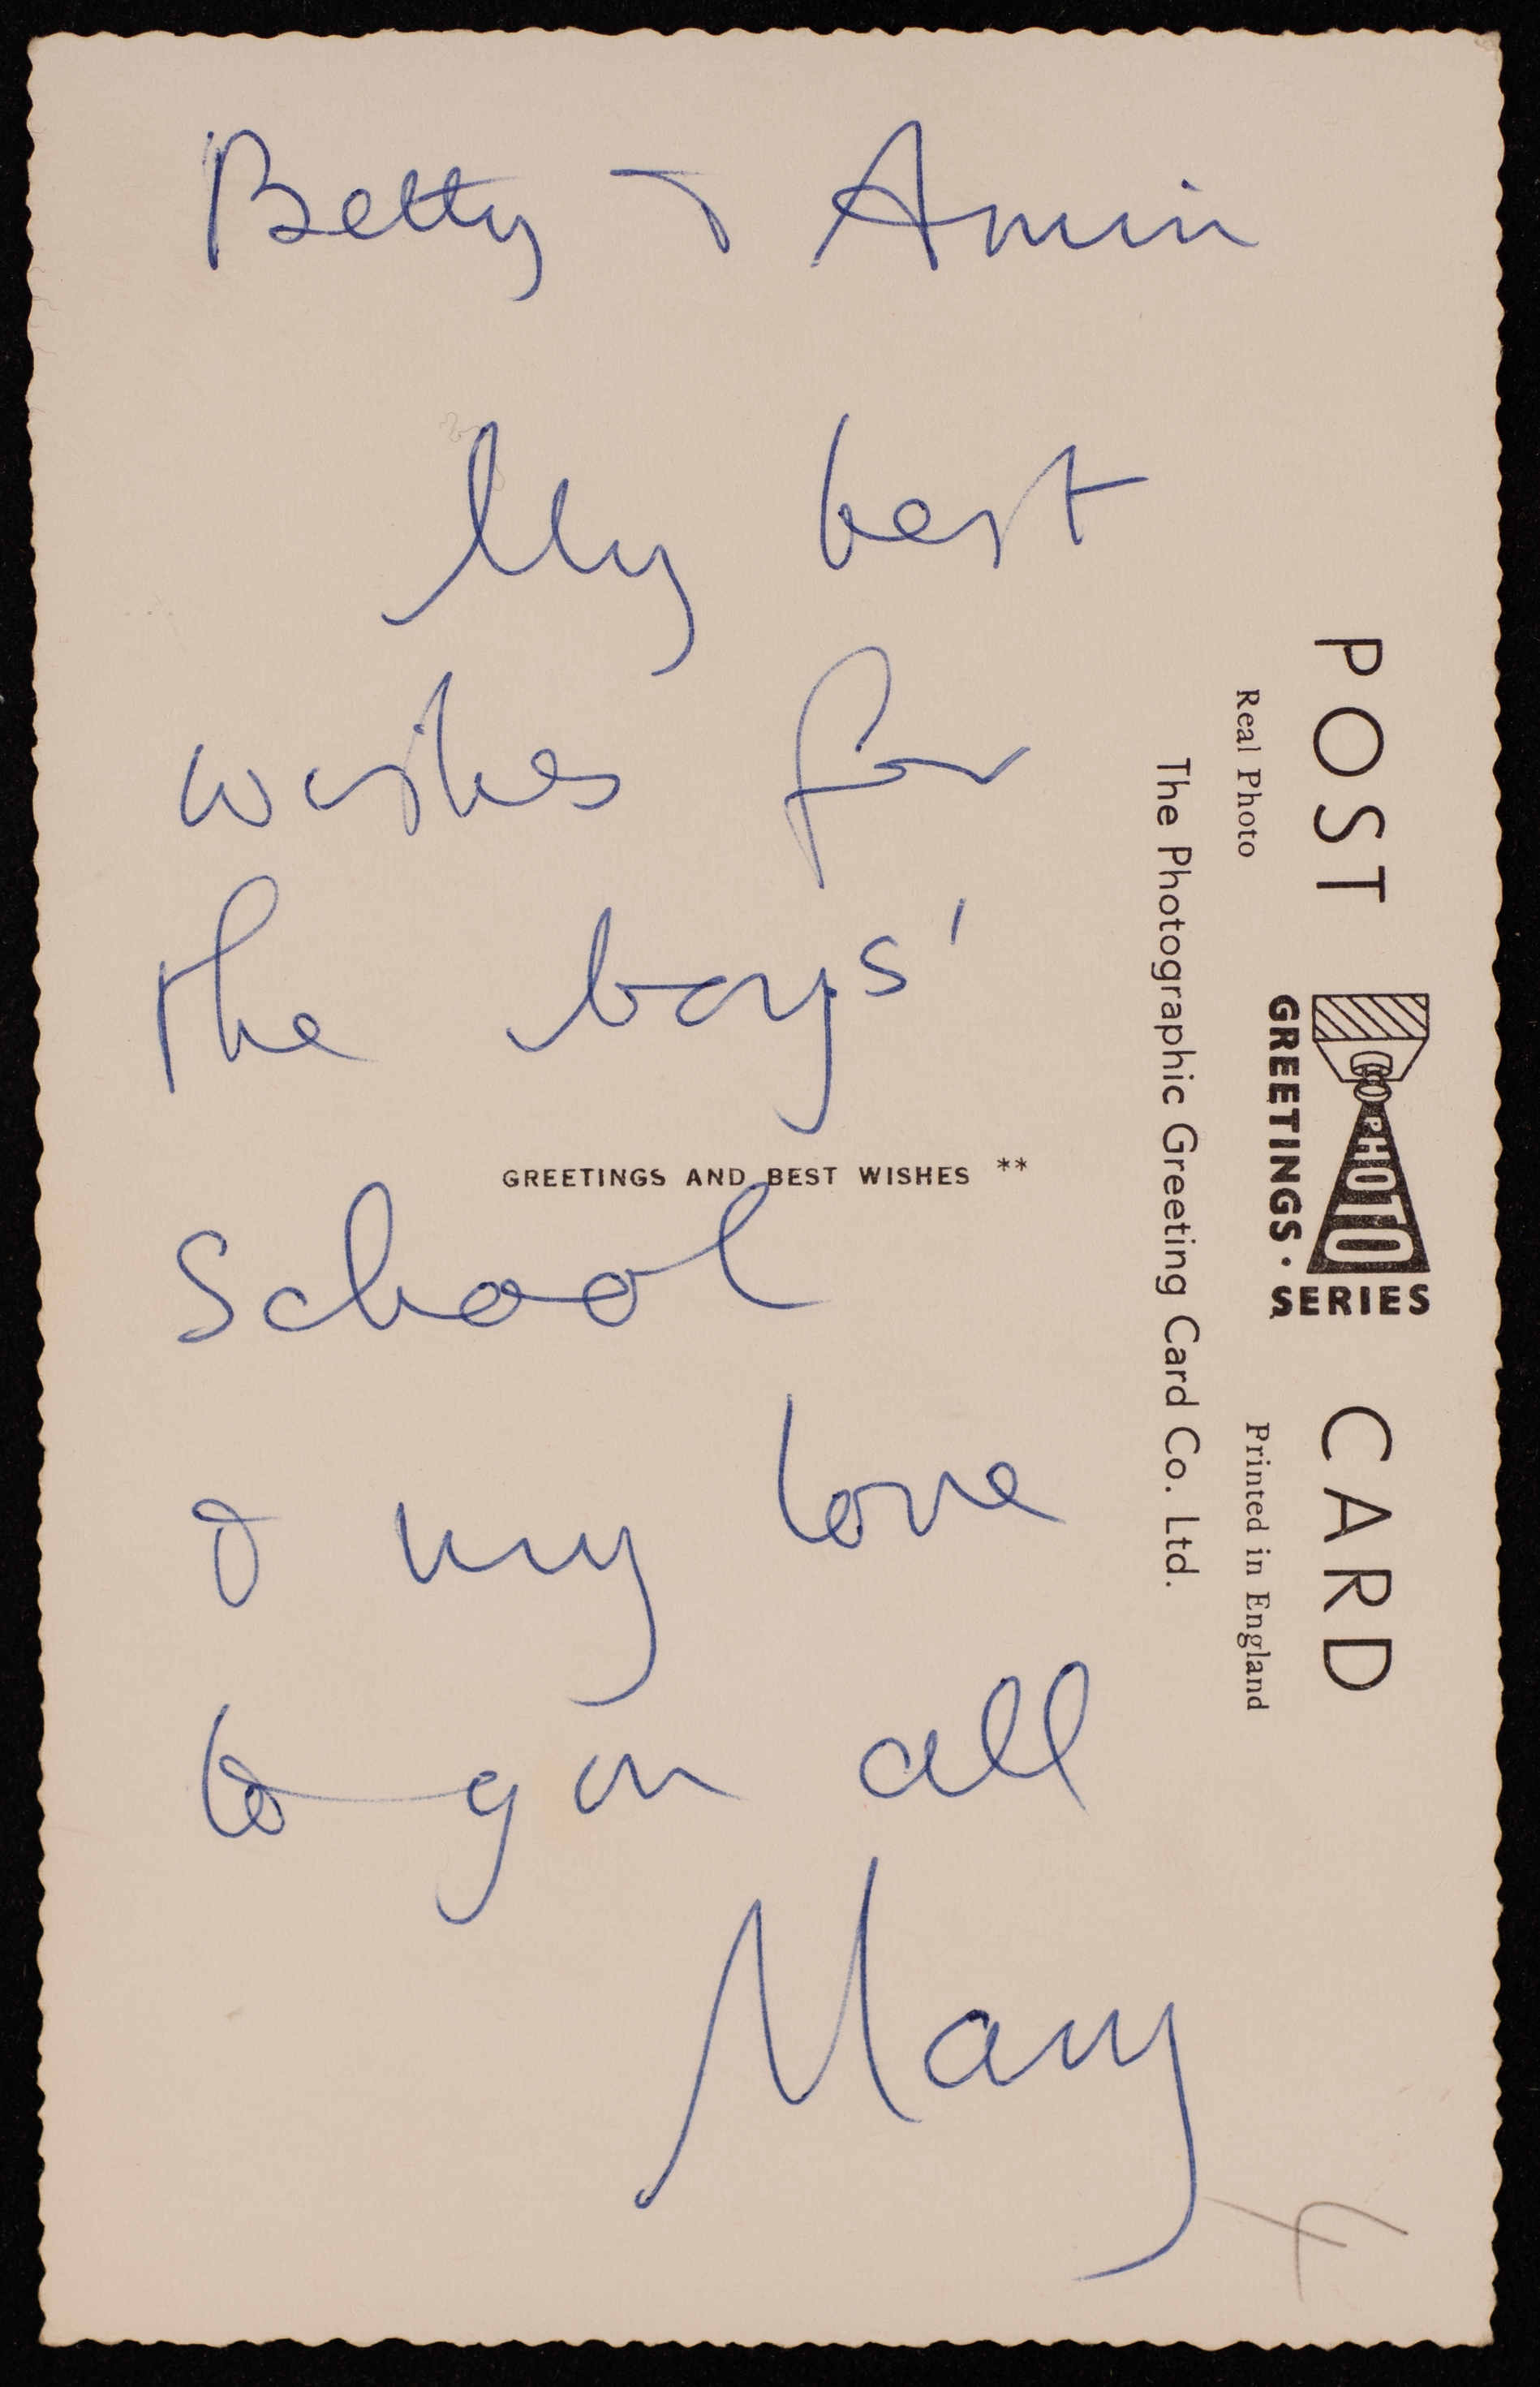 Betty & Amin
My best
wishes for
the boys'
GREETINGS AND BEST WISHES **
School
& my love
to you all
Mary
POST CARD
GREETINGS · PHOTO SERIES
Real Photo
Printed in England
The Photographic Greeting Card Co. Ltd.